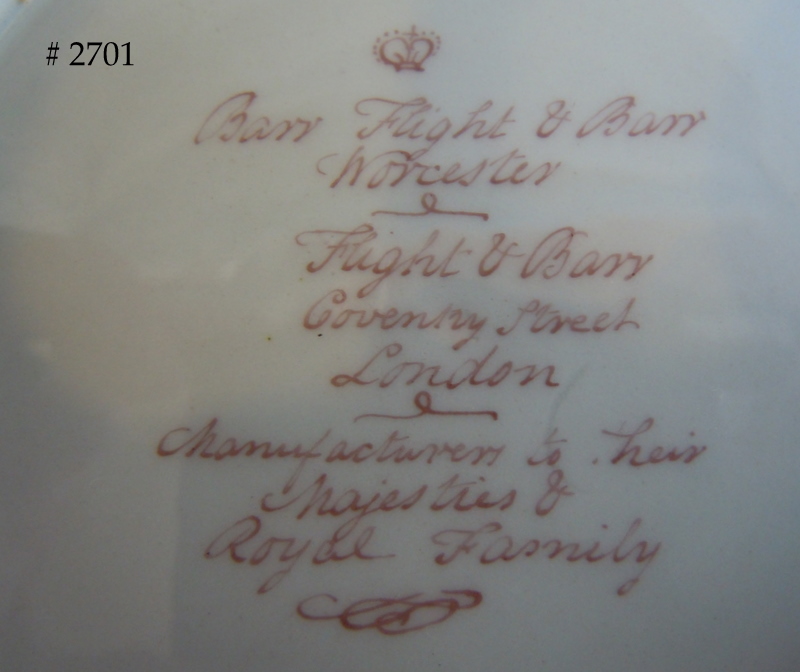 # 2701
Barr Flight & Barr
Worcester
Flight & Barr
Coventry Street
London
Manufacturers to their
Majesties &
Royal Family